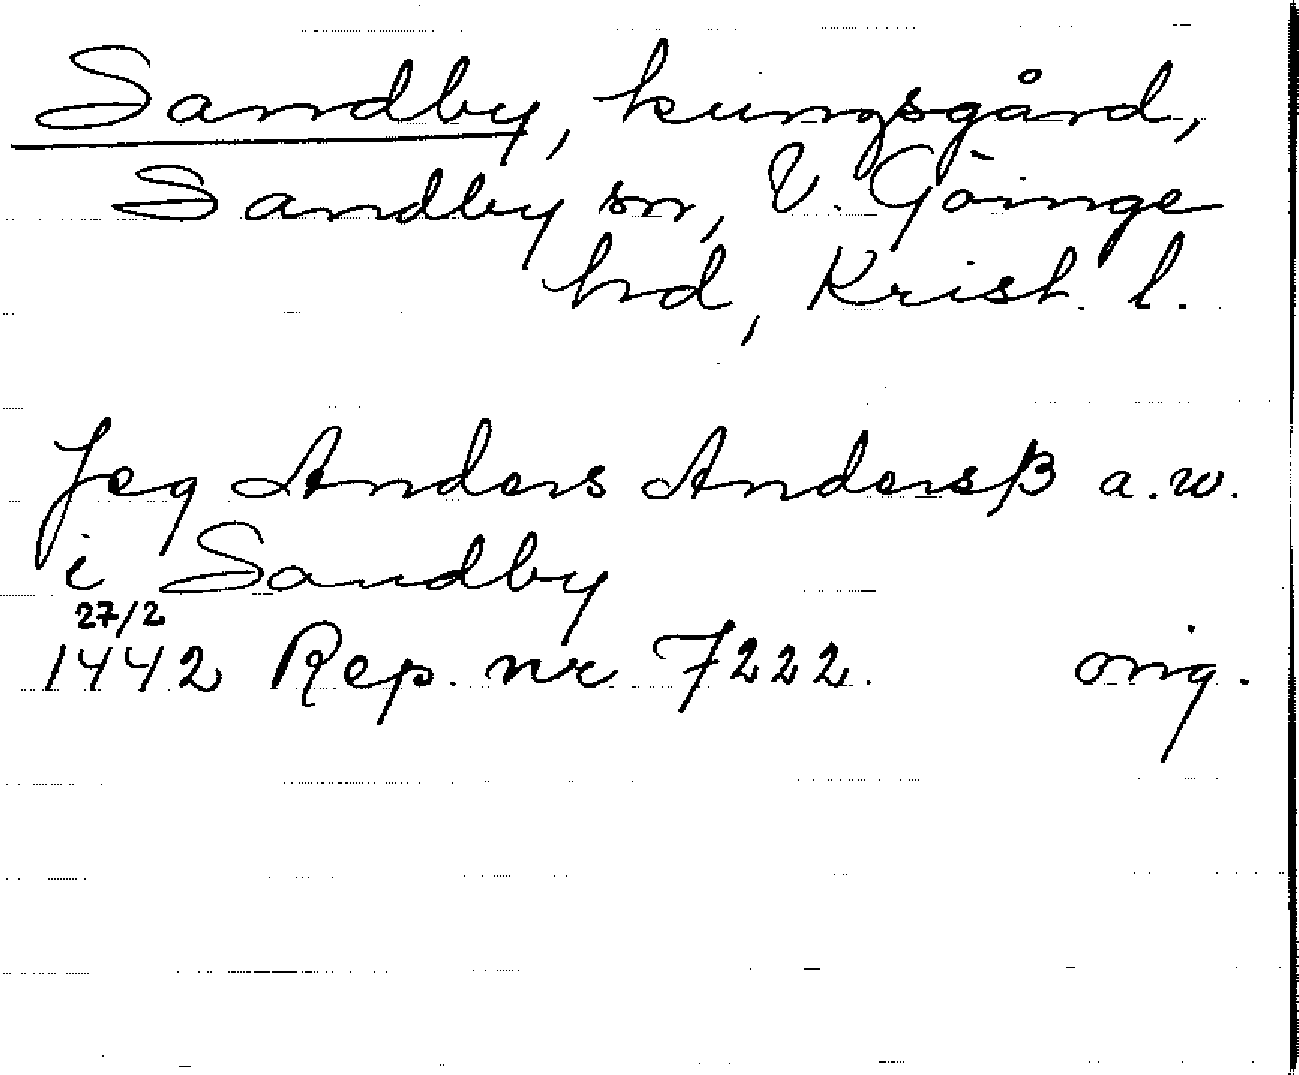 Sandby, kungsgård,
Sandby sn, V. Göinge
hd, Krist. l.
Jeg Anders Andersß a.w.
i Sandby
27/2
1442 Rep. nr 7222. orig.